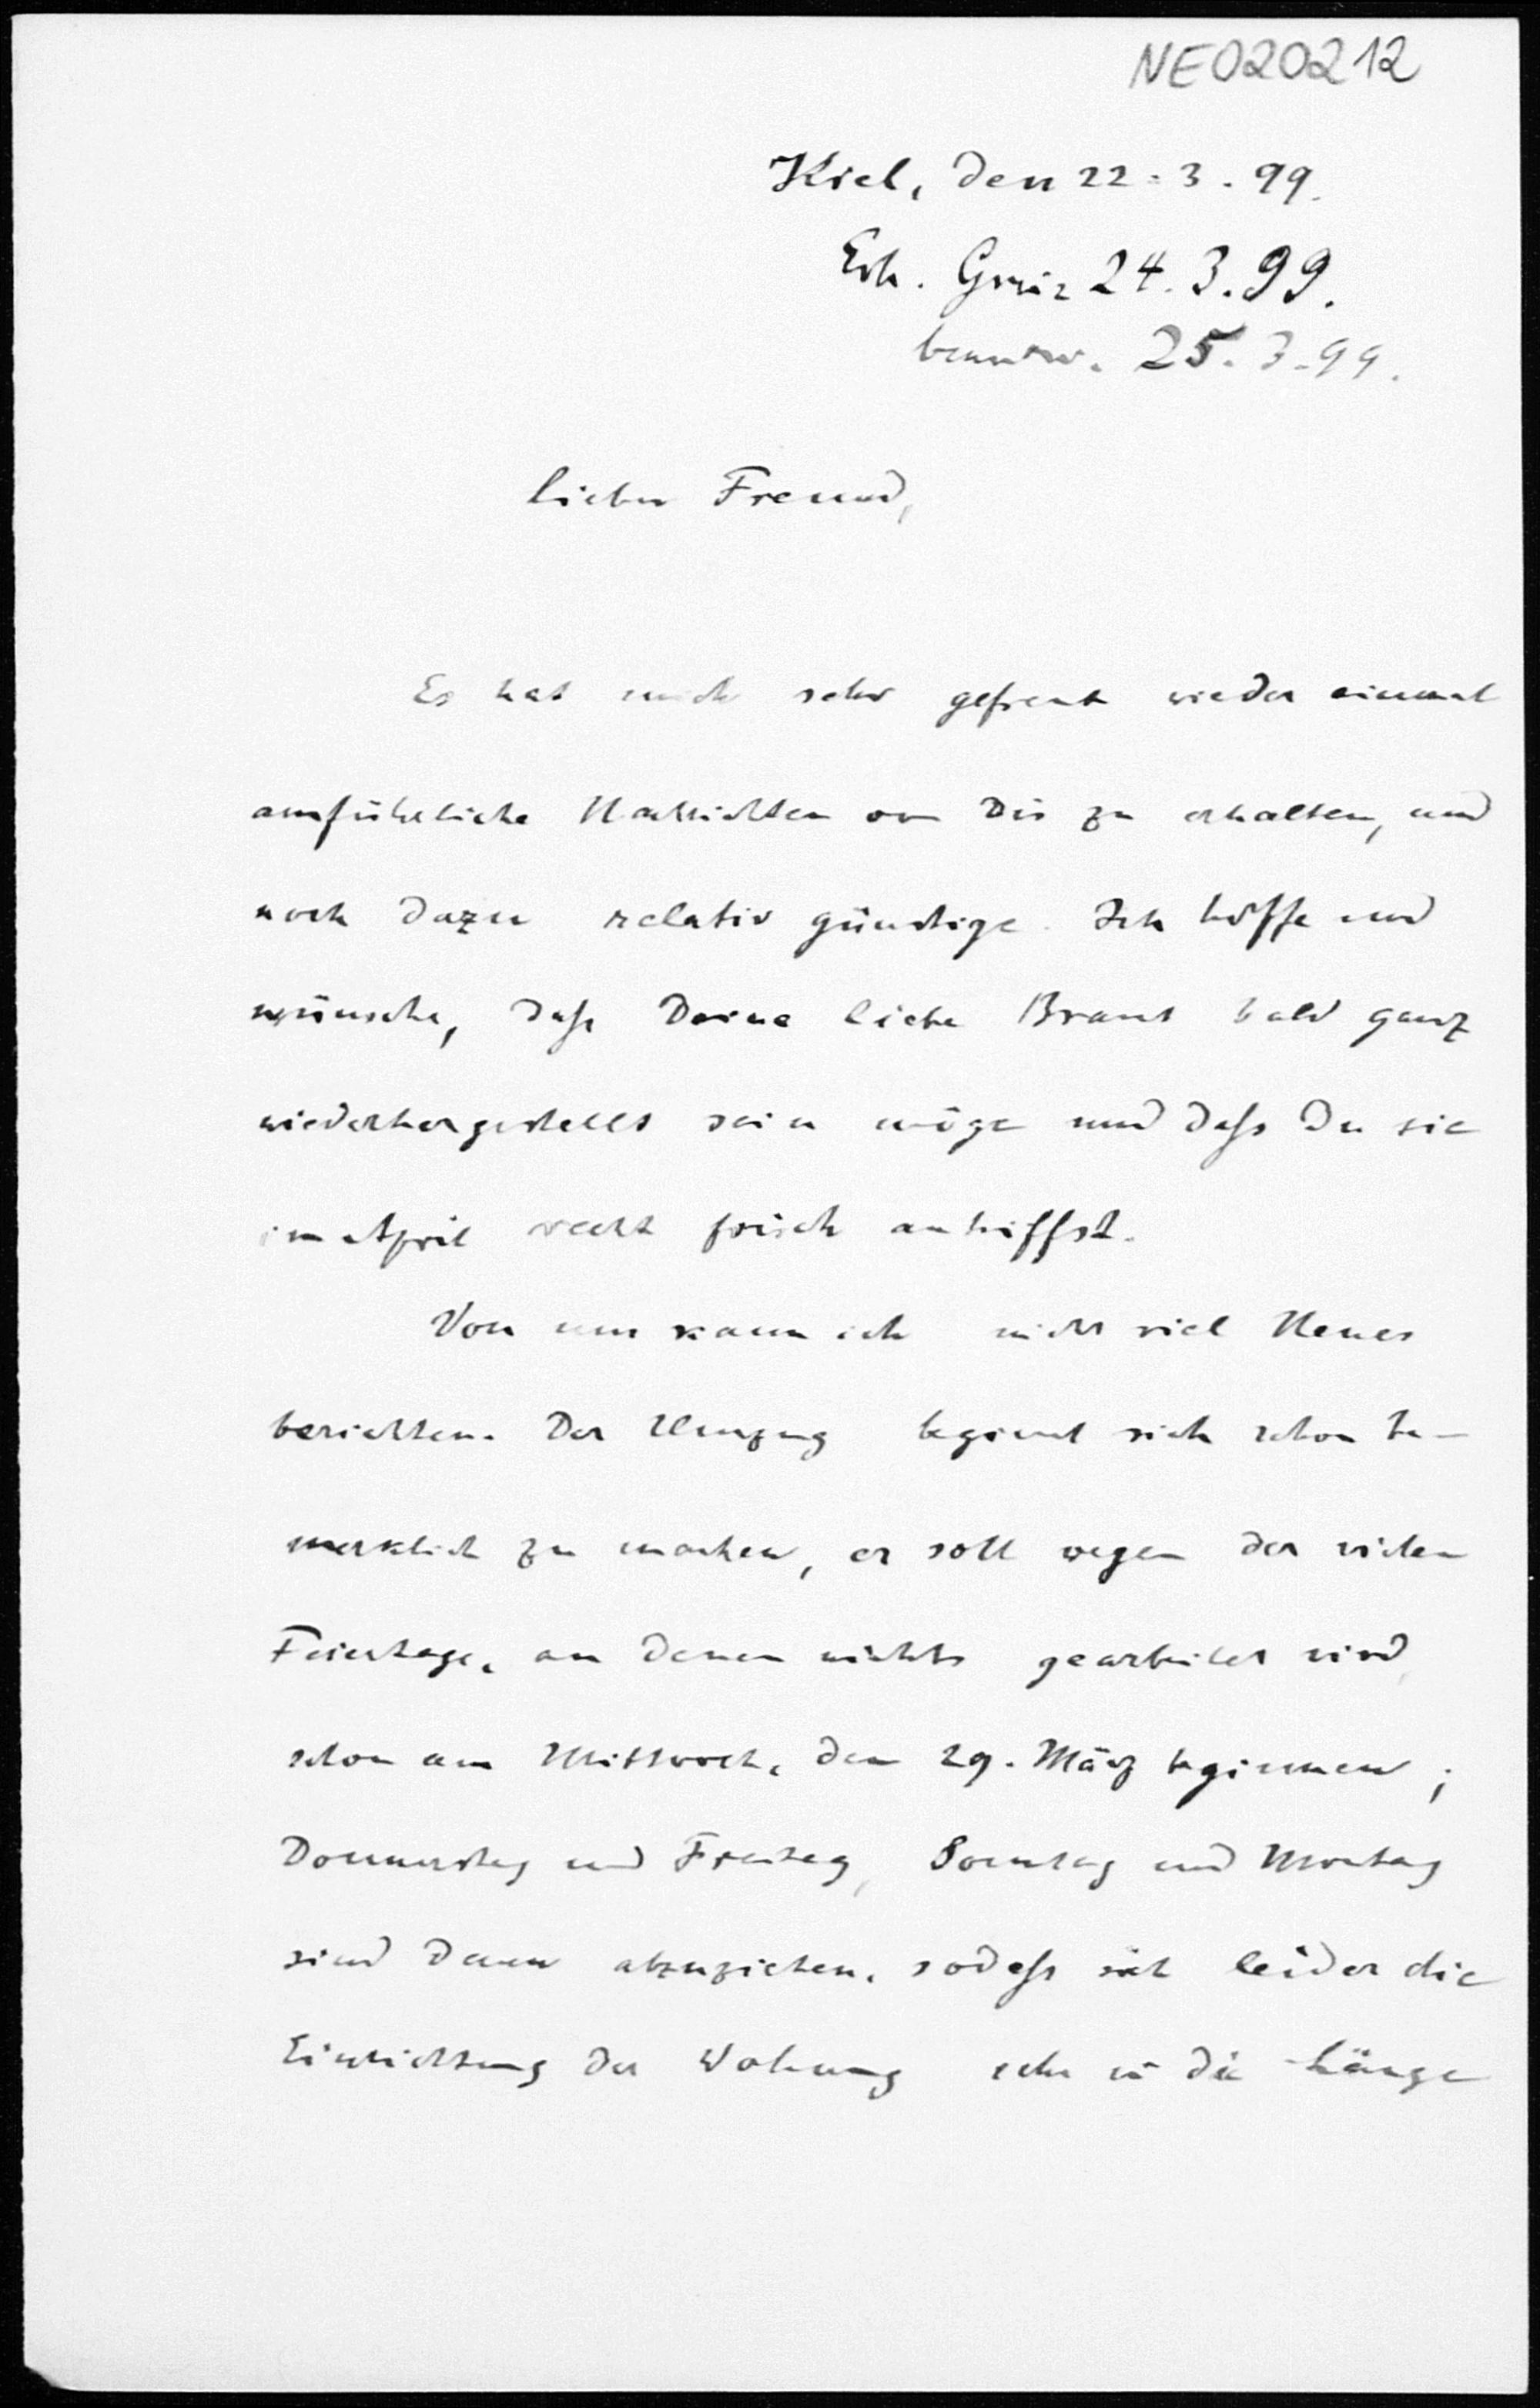 NE020212
Kiel, den 22.3.99.
Erh. Greiz 24.3.99.
beantw. 25.3.99.
Lieber Freund,
Es hat mich sehr gefreut wieder einmal
ausführliche Nachrichten von Dir zu erhalten, und
noch dazu relativ günstige. Ich hoffe und
wünsche, dass Deine liebe Braut bald ganz
wiederhergestellt sein möge und dass Du sie
im April recht frisch antriffst.
Von uns kann ich nicht viel Neues
berichten. Der Umzug beginnt sich schon be-
merklich zu machen, er soll wegen der vielen
Feiertage, an denen nichts gearbeitet wird,
schon am Mittwoch, den 29. März beginnen;
Donnerstag und Freitag, Sonntag und Montag
sind dann abzuziehen, sodass sich leider die
Einrichtung der Wohnung sehr in die Länge